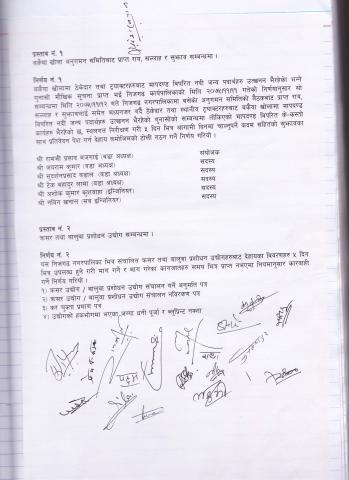 प्रस्ताव नं. १
बकैया खोला अनुगमन समितिबाट प्राप्त राय, सल्लाह र सुझाव सम्बन्धमा ।
निर्णय नं. १
बकैया खोलामा ठेकेदार तथा ट्र्याक्टरहरुबाट मापदण्ड विपरित नदी जन्य पदार्थहरु उत्खनन भैरहेको भन्ने
गुनासो मौखिक सूचना प्राप्त भई निजगढ कार्यपालिकाको मिति २०७५/११/११ गतेको निर्णयानुसार सो
सम्बन्धमा मिति २०७५/११/१२ गते निजगढ नगरपालिकामा बसेको अनुगमन समितिको बैठकबाट प्राप्त राय,
सल्लाह र सुझावलाई समेत अध्ययन गर्दै ठेकेदार तथा स्थानीय ट्र्याक्टरहरुबाट बकैया खोलामा मापदण्ड
विपरित नदी जन्य पदार्थहरु उत्खनन भैरहेको गुनासोको सम्बन्धमा तोकिएको मापदण्ड विपरित के-कस्तो
कार्यहरु भैरहेको छ, स्थलगत निरीक्षण गरी ३ दिन भित्र आगामी दिनमा चाल्नुपर्ने कदम सहितको सुझावका
साथ प्रतिवेदन पेश गर्न देहाय बमोजिमको टोली गठन गर्ने निर्णय गरियो ।
श्री रामजी प्रसाद बजगाई (वडा अध्यक्ष) संयोजक
श्री जयराम कुमार (वडा अध्यक्ष) सदस्य
श्री सुदर्शनप्रसाद दाहाल (वडा अध्यक्ष) सदस्य
श्री टेक बहादुर लामा (वडा अध्यक्ष) सदस्य
श्री अशोक कुमार कुशवाहा (इन्जिनियर) सदस्य
श्री नविन खनाल (सव इन्जिनियर) सदस्य
प्रस्ताव नं. २
क्रसर तथा वालुवा प्रशोधन उद्योग सम्बन्धमा ।
निर्णय नं. २
यस निजगढ नगरपालिका भित्र संचालित क्रसर तथा वालुवा प्रशोधन उद्योगहरुबाट देहायका विवरणहरु ५ दिन
भित्र उपलब्ध हुने गरी माग गर्ने र माग गरेका कागजातहरु समय भित्र प्राप्त नभएमा नियमानुसार कारवाही
गर्ने निर्णय गरियो ।
१) क्रसर उद्योग / वालुवा प्रशोधन उद्योग संचालन गर्ने अनुमति पत्र
२) क्रसर उद्योग / वालुवा प्रशोधन उद्योग संचालन नविकरण पत्र
३) कर चुक्ता प्रमाण पत्र
४) उद्योगको हकभोगमा भएका जग्गा धनी पूर्जा र ब्लुप्रिन्ट नक्सा